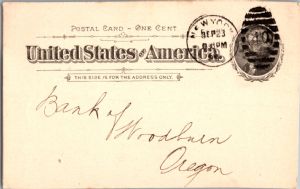 POSTAL CARD – ONE CENT
United States of America.
THIS SIDE IS FOR THE ADDRESS ONLY.
NEW YORK
SEP 23
PM
Bank of
Woodburn
Oregon